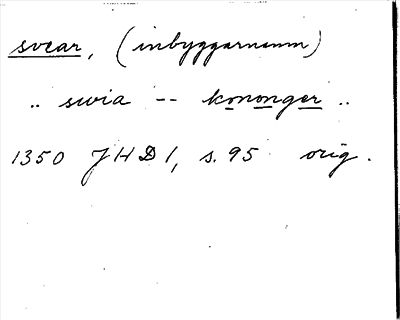 svear, (inbyggarnamn)
.. swia -- kononger ..
1350 JHD 1, s. 95 orig.